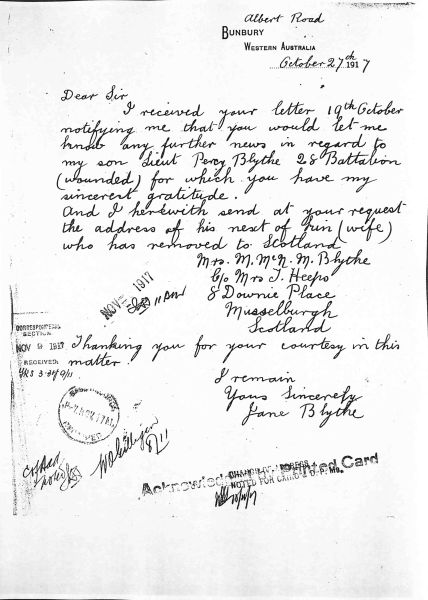 Albert Road
BUNBURY
WESTERN AUSTRALIA
October 27th 1917
Dear Sir
I received your letter 19th October
notifying me that you would let me
know any further news in regard to
my son Lieut Percy Blythe 28 Battalion
(wounded) for which you have my
sincerest gratitude.
And I herewith send at your request
the address of his next of kin (wife)
who has removed to Scotland
Mrs. M. McN. M. Blythe
C/o Mrs J. Heeps
8 Downie Place
Musselburgh
Scotland
NOV 1917
CORRESPONDENCE
SECTION
NOV 9 1917
RECEIVED
Thanking you for your courtesy in this
matter.
I remain
Yours Sincerely
Jane Blythe
8/11
Acknowledged Printed Card
NOTED FOR